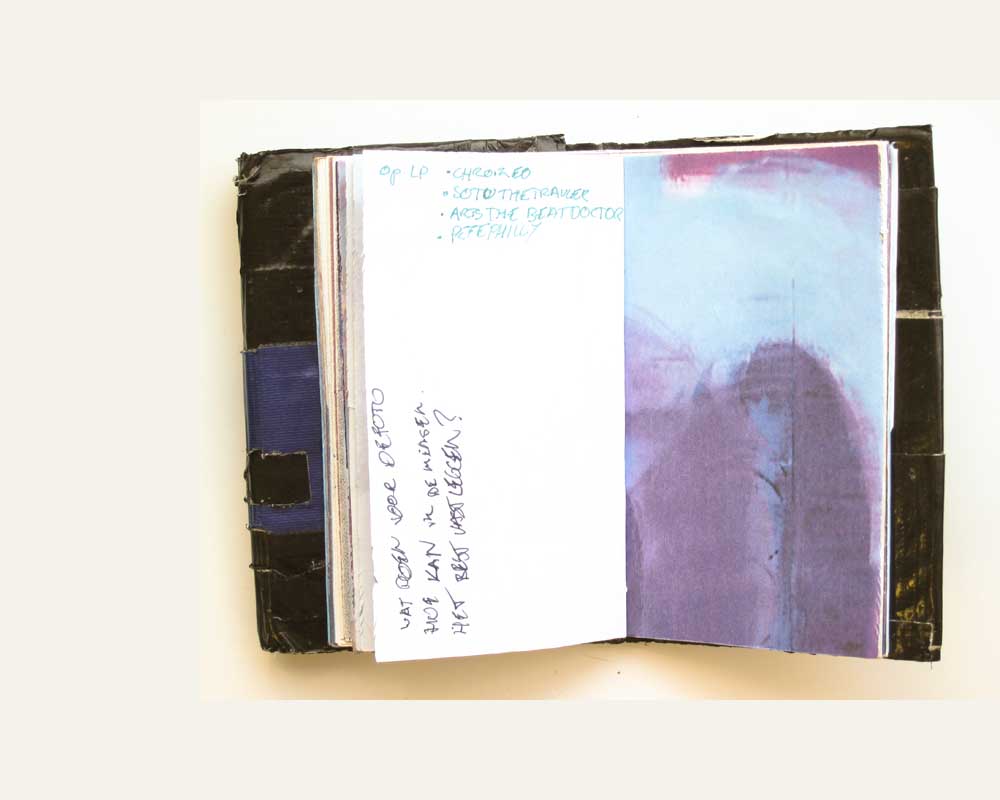 Op LP • CHROMEO
• SOTU THE TRAVLER
• ARTS THE BEATDOCTOR
• PETE PHILLY
WAT DOEN VOOR DE FOTO
HOE KAN IK DE MENSEN.
HET BEST VASTLEGGEN?